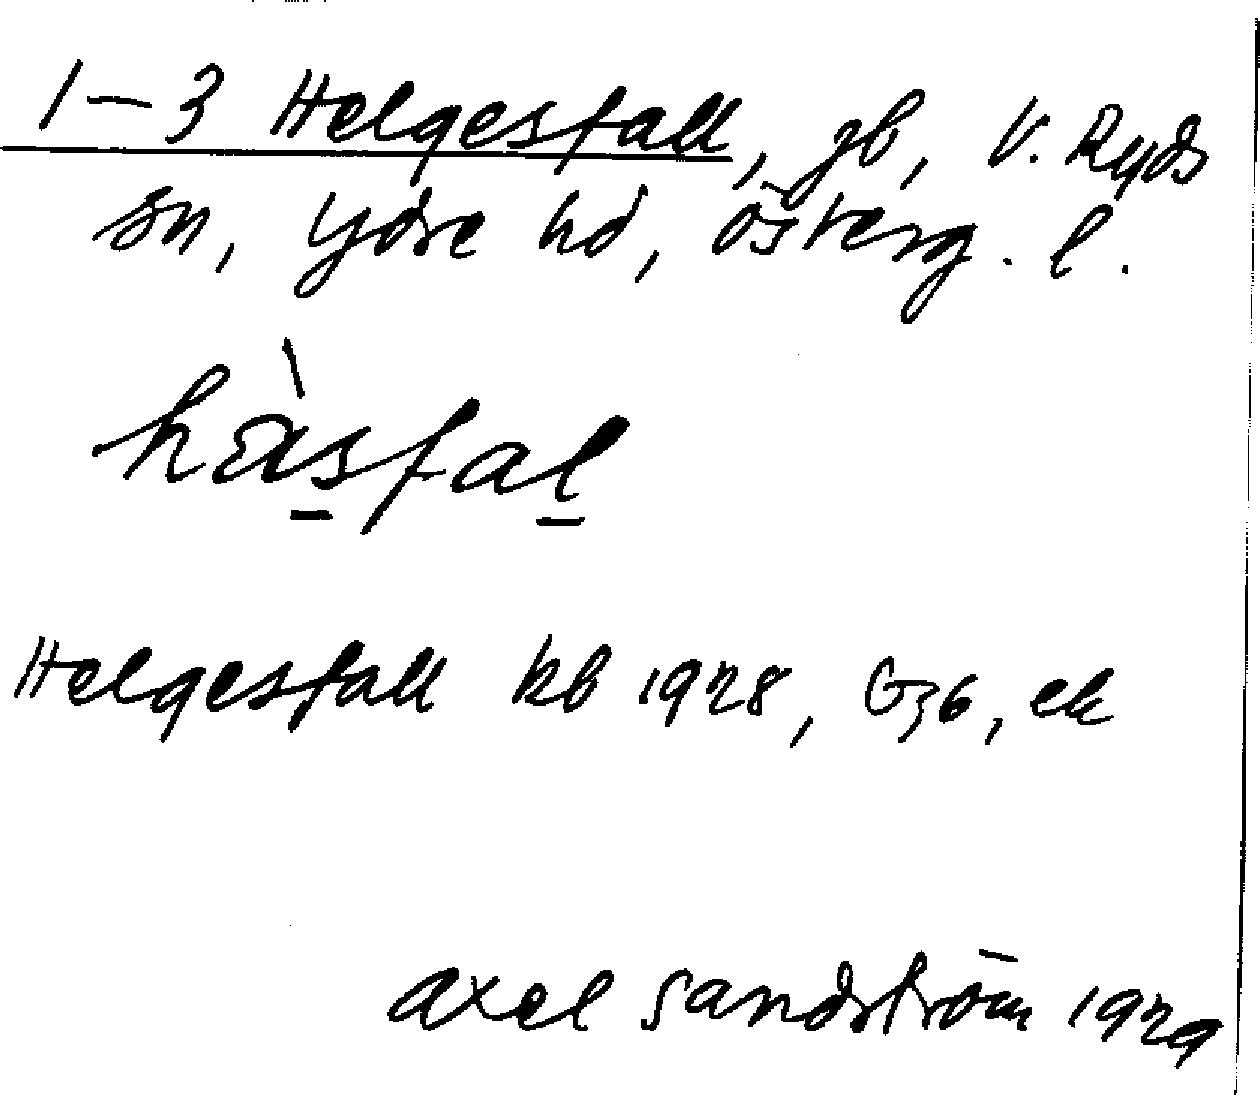 1–3 Helgesfall, gb, V. Ryds
sn, Ydre hd, Österg. l.
hàs̲fal̲
Helgesfall kb 1928, G36, ek
Axel Sandström 1929